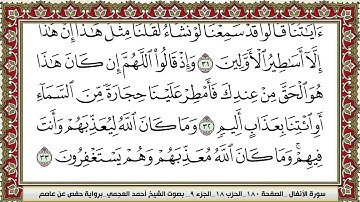 ءَايَٰتُنَا قَالُوا۟ قَدْ سَمِعْنَا لَوْ نَشَآءُ لَقُلْنَا مِثْلَ هَٰذَآ إِنْ هَٰذَآ
إِلَّآ أَسَٰطِيرُ ٱلْأَوَّلِينَ ٣١ وَإِذْ قَالُوا۟ ٱللَّهُمَّ إِن كَانَ هَٰذَا
هُوَ ٱلْحَقَّ مِنْ عِندِكَ فَأَمْطِرْ عَلَيْنَا حِجَارَةً مِّنَ ٱلسَّمَآءِ
أَوِ ٱئْتِنَا بِعَذَابٍ أَلِيمٍ ٣٢ وَمَا كَانَ ٱللَّهُ لِيُعَذِّبَهُمْ وَأَنتَ
فِيهِمْ ۚ وَمَا كَانَ ٱللَّهُ مُعَذِّبَهُمْ وَهُمْ يَسْتَغْفِرُونَ ٣٣
سورة الأنفال _الصفحة ١٨٠_الحزب ١٨_الجزء ٩_ بصوت الشيخ أحمد العجمي_برواية حفص عن عاصم